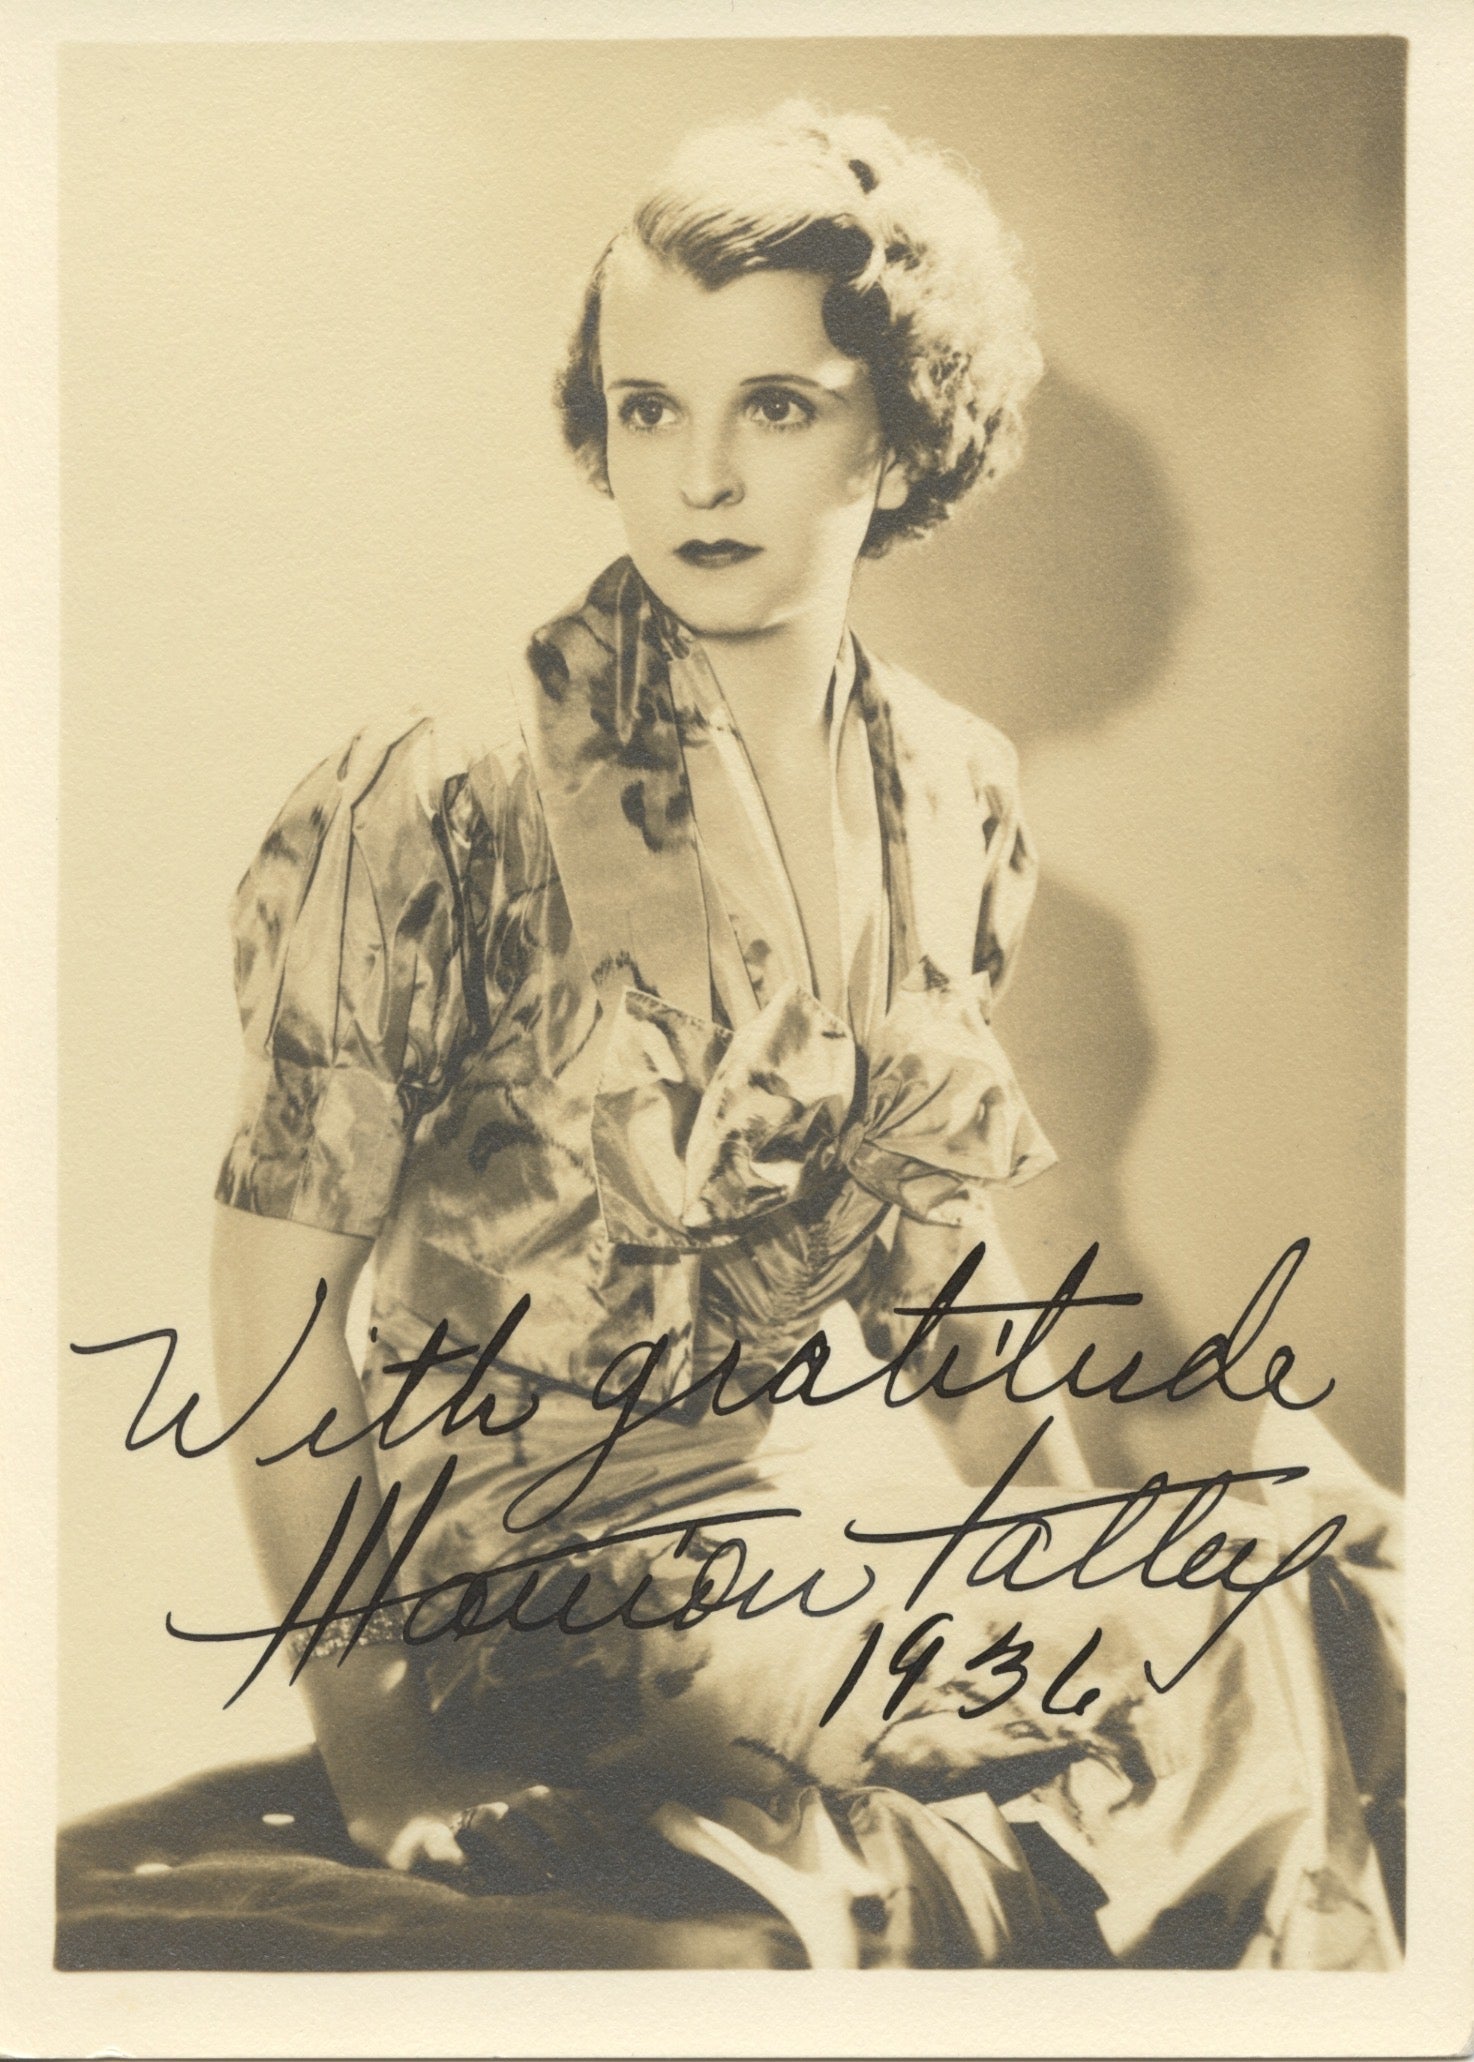 With gratitude
Marion Talley
1936